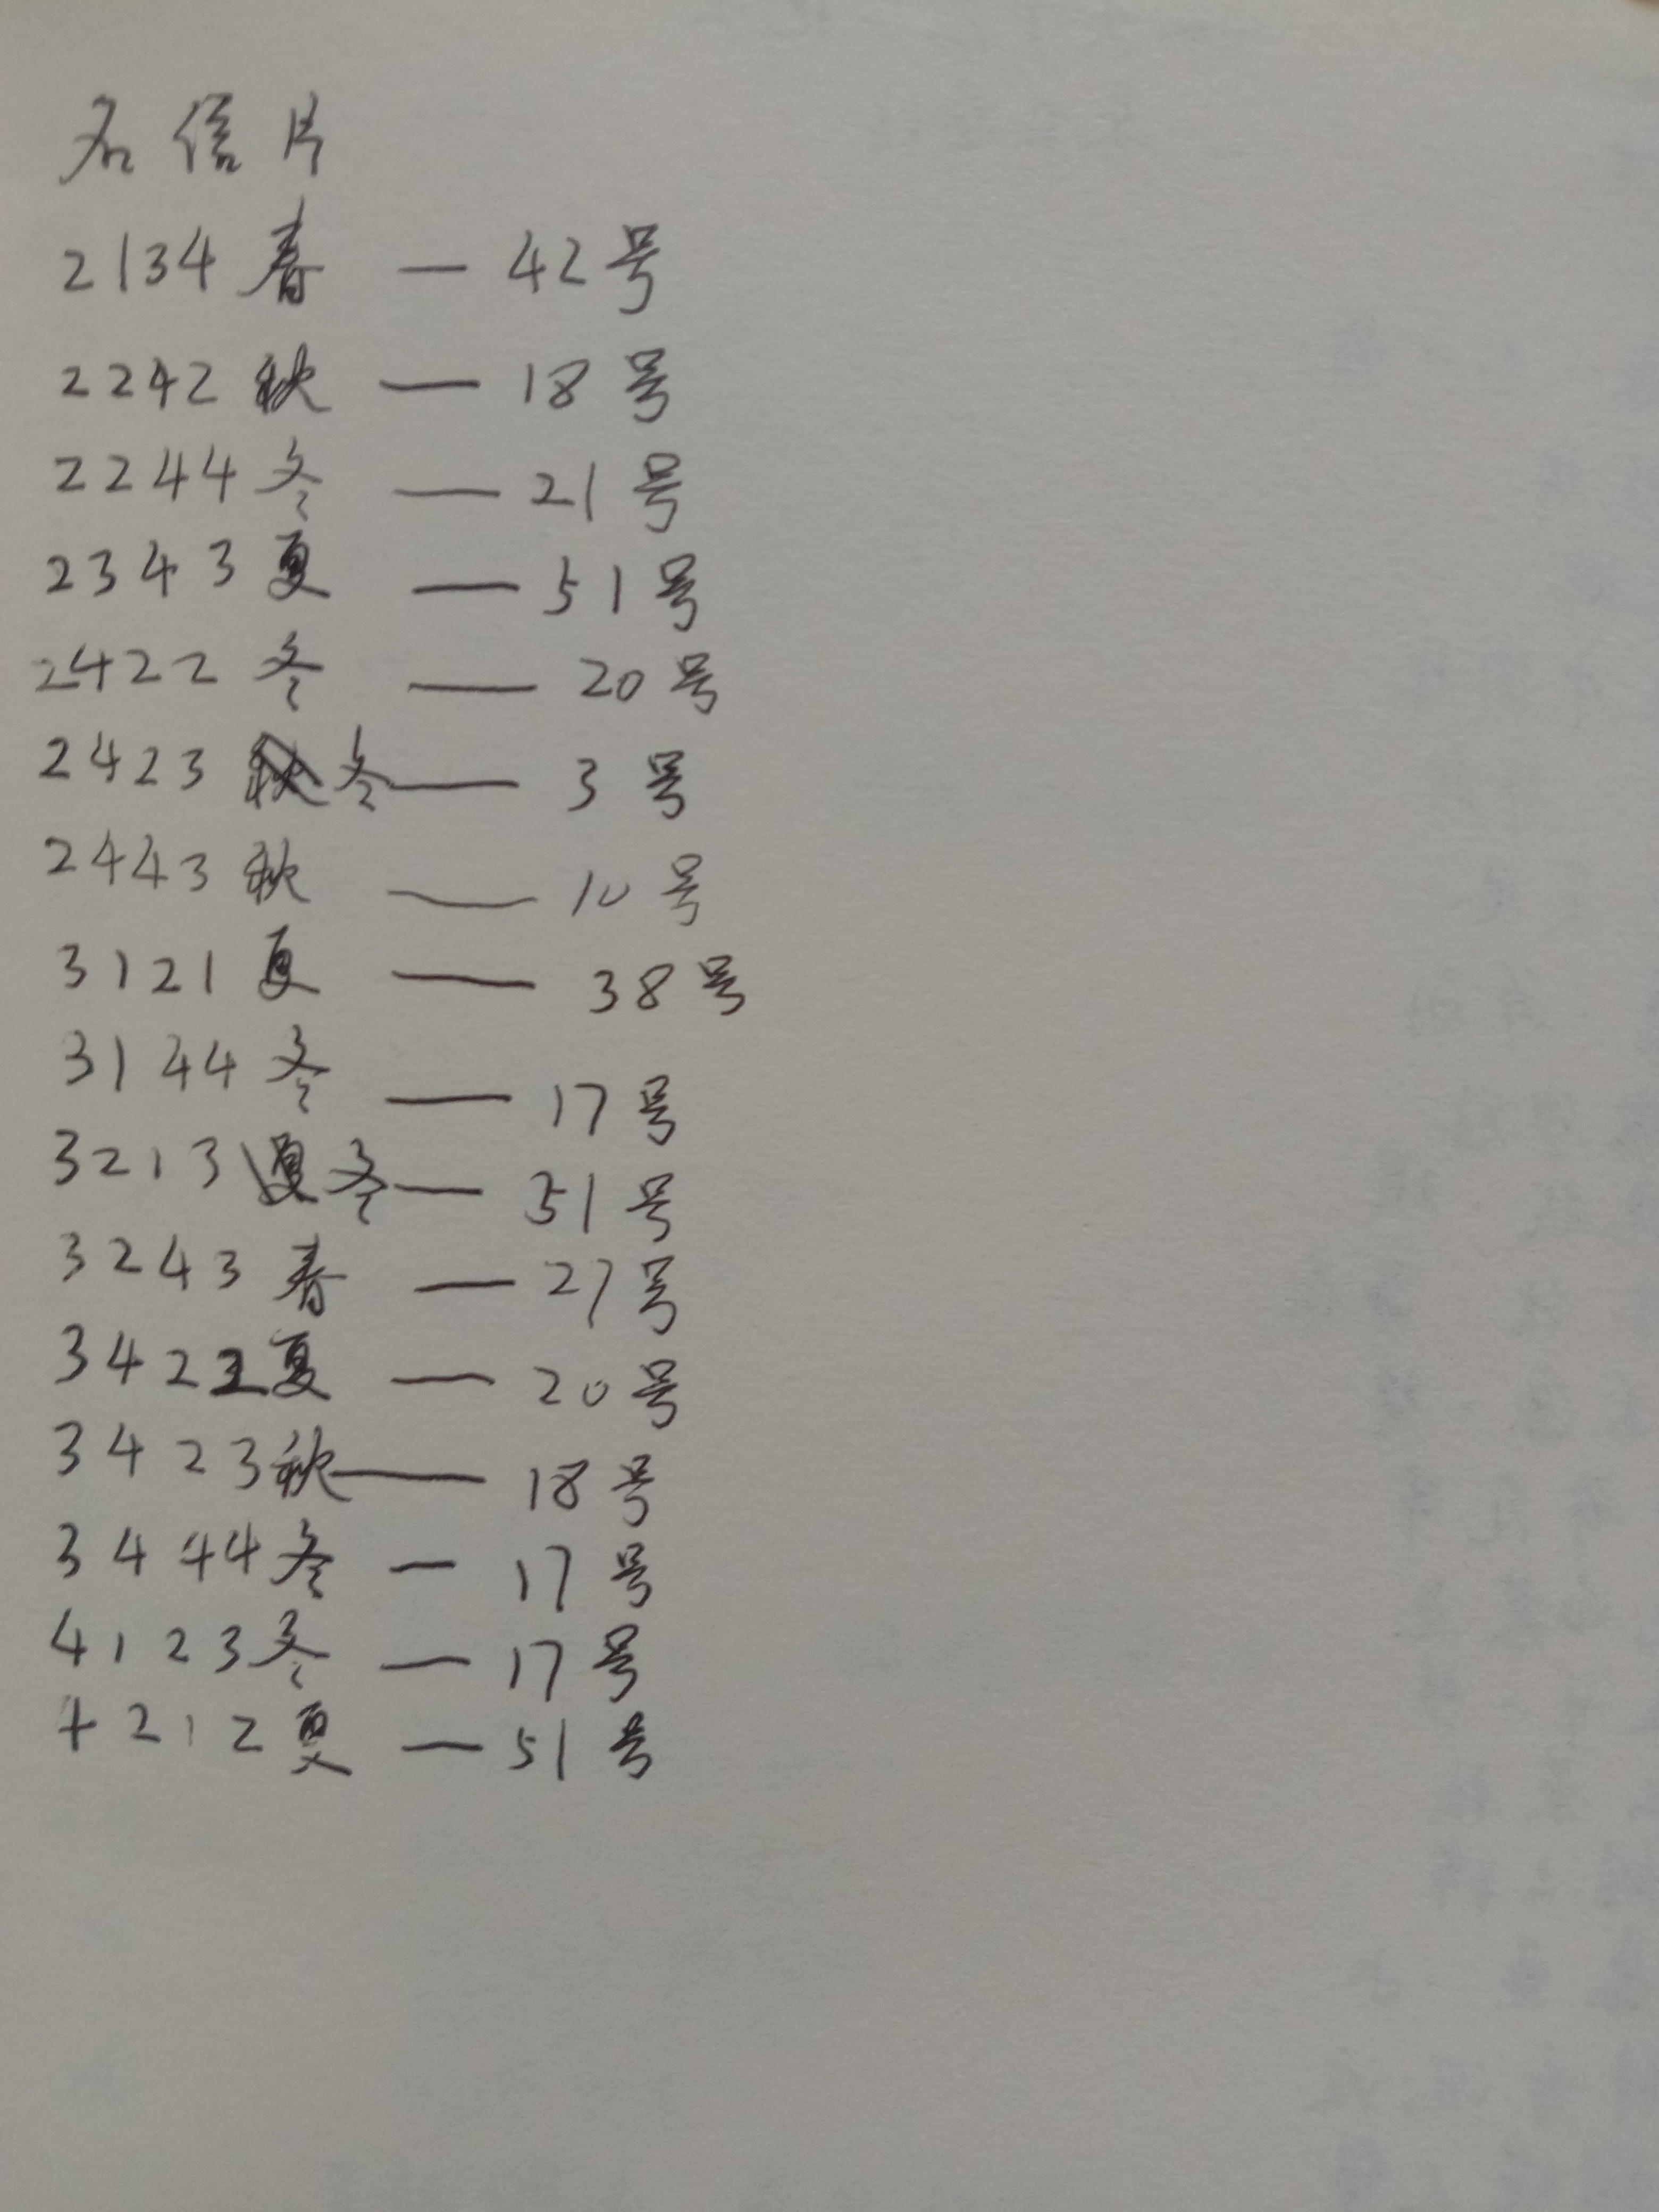 名信片
2134春 — 42号
2242秋 — 18号
2244冬 — 21号
2343夏 — 51号
2422冬 — 20号
2423冬 — 3号
2443秋 — 10号
3121夏 — 38号
3144冬 — 17号
3213冬 — 51号
3243春 — 27号
3422夏 — 20号
3423秋 — 18号
3444冬 — 17号
4123冬 — 17号
4212夏 — 51号